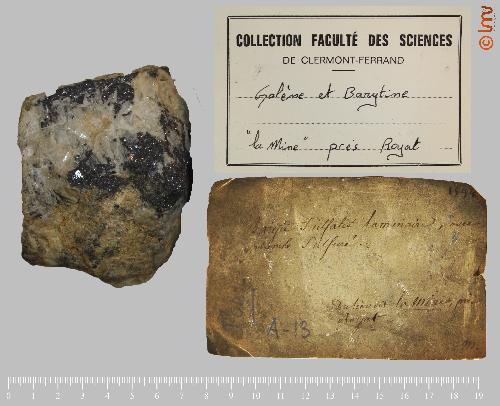 COLLECTION FACULTÉ DES SCIENCES
DE CLERMONT-FERRAND
Galène et Barytine
"la Mine" près Royat
© lmv
Sulfatée laminaire, avec
Sulfuré.
la Mine, près
Royat
A-13
0 1 2 3 4 5 6 7 8 9 10 11 12 13 14 15 16 17 18 19